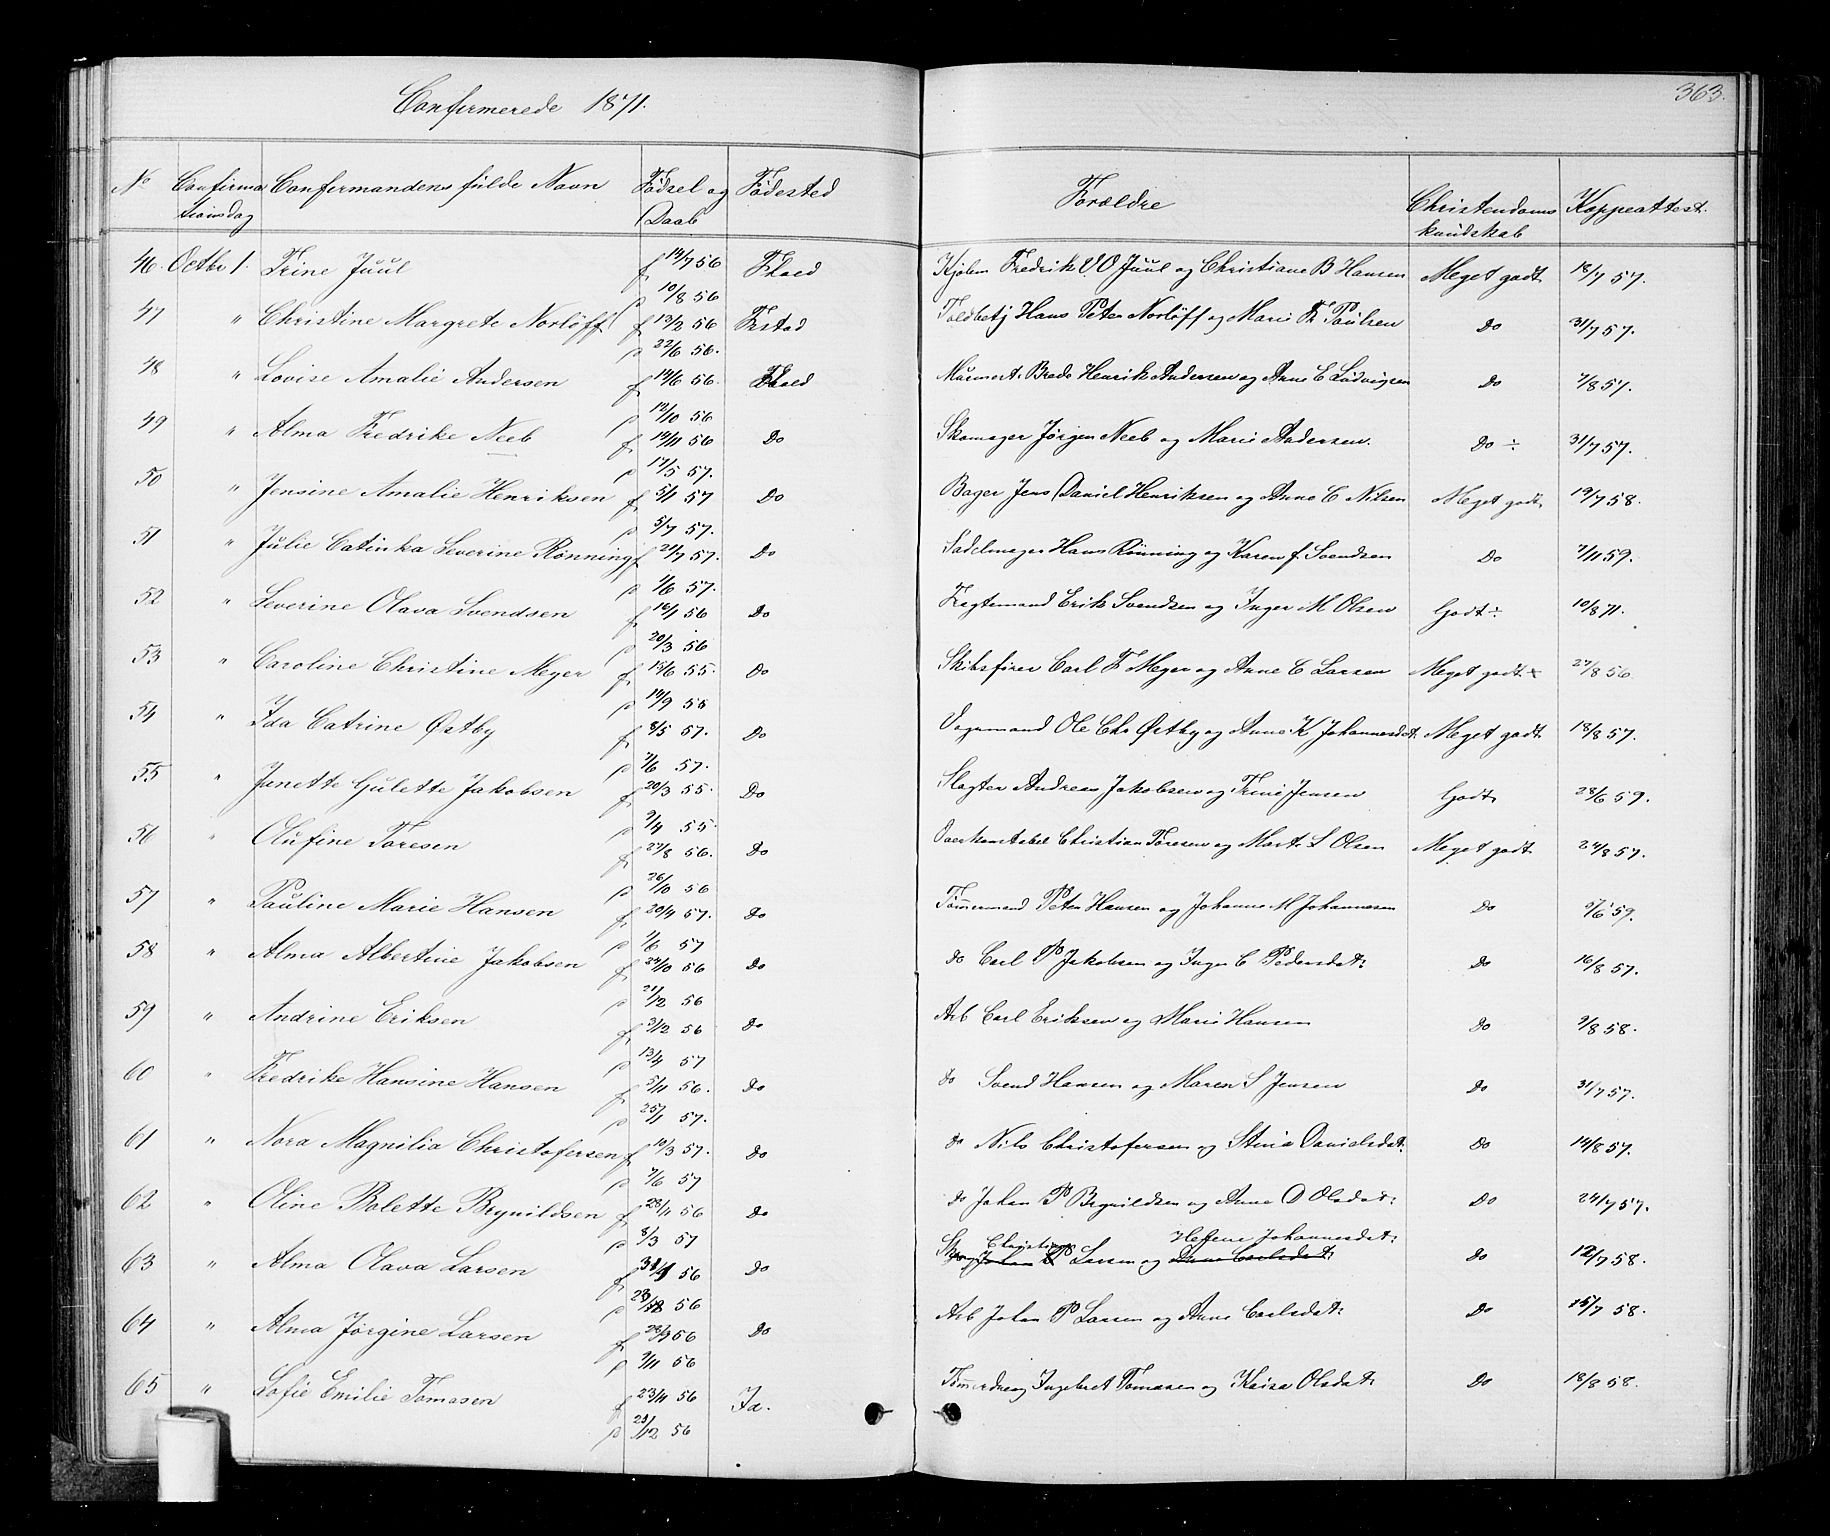 Confermerede 1871.
363.
No Confirmationsdag Confermandens fulde Navn Fødsel og Daab Fødested Forældre Christendomskundskab Koppeattest.
46. Octbr 1. Trine Juul f 14/7 56 Fhald Kjøbm Fredrik V O Juul og Christiane B Hansen Meget godt 18/7 57.
p 10/8 56
47 " Christine Margrete Norløff f 13/2 56 Frstad Toldbetj Hans Peter Norløff og Marie Fr Paulsen Do 31/7 57.
p 22/6 56.
48 " Lovise Amalie Andersen f 14/6 56. Fhald Murmest. Brede Henrik Andersen og Anne E Ludvigsen Do 7/8 57.
p 12/10 56
49 " Alma Fredrike Neeb f 14/11 56 Do Skomager Jørgen Neeb og Marie Andersen. Do ÷ 31/7 57.
p 17/5 57.
50 " Jensine Amalie Henriksen f 5/1 57 Do Bager Jens Daniel Henriksen og Anne C Nilsen Meget godt 19/7 58.
p 5/7 57.
51 " Julie Catinka Severine Rønning f 21/7 57. Do Sadelmager Hans Rønning og Karen f. Svendsen Do 7/11 59.
p 1/6 57.
52 " Severine Olava Svendsen f 16/1 56 Do Fragtemand Erik Svendsen og Inger M. Olsen Godt ÷ 10/8 71.
p 20/3 56
53 " Caroline Christine Meyer f 15/6 55. Do Skibsfører Carl F Meyer og Anne C Larsen Meget godt 27/8 56.
p 14/9 55
54 " Ida Catrine Østby f 8/5 57. Do Vognmand Ole Chr Østby og Anne K Johannesdat. Meget godt 18/8 57.
p 7/6 57.
55 " Janette Gulette Jakobsen f 20/3 55. Do Slagter Andreas Jakobsen og Trine Jensen Godt 28/6 59.
p 9/4 55
56 " Olufine Toresen f 27/8 56. Do Overkonstabel Christian Toresen og Mart. S Olsen Meget godt 24/8 57.
p 26/10 56
57 " Pauline Marie Hansen f 20/4 57. Do Tømmermand Peter Hansen og Johanne M Johannesen Do 5/6 59.
p 1/6 57
58 " Alma Albertine Jakobsen f 24/10 56 Do do Carl P Jakobsen og Inger C Pedersdat: Do 16/8 57.
p 21/12 56
59 " Andrine Eriksen f 3/12 56 Do Arb Carl Eriksen og Marie Hansen Do 9/8 58.
p 13/4 57
60 " Fredrike Hansine Hansen f 5/11 56. Do do Svend Hansen og Maren S Jensen Do 31/7 57.
p 25/1 57.
61 " Nora Magnilia Christofersen f 10/3 57. Do do Nils Christofersen og Stina Danielsdat: Do 14/8 57.
p 7/6 57
62 " Oline Bolette Brynildsen f 28/11 56 Do do Johan P Brynildsen og Anne D Olsdat: Do 24/7 57.
p 8/3 57
Christian Hellene Johannesdat:
63 " Alma Olava Larsen f 56 Do Johan P Larsen og Anne Carlsdat: Do 12/7 58.
p 56
64 " Alma Jørgine Larsen f 56 Do Arb Johan P Larsen og Anne Carlsdat: Do 15/7 58.
p 9/11 56
65 " Sofie Emilie Tomasen f 23/11 56 Id. Tømmerdreng Ingebret Tomasen og Kaisa Olsdat: Do 18/8 58.
p 21/12 56